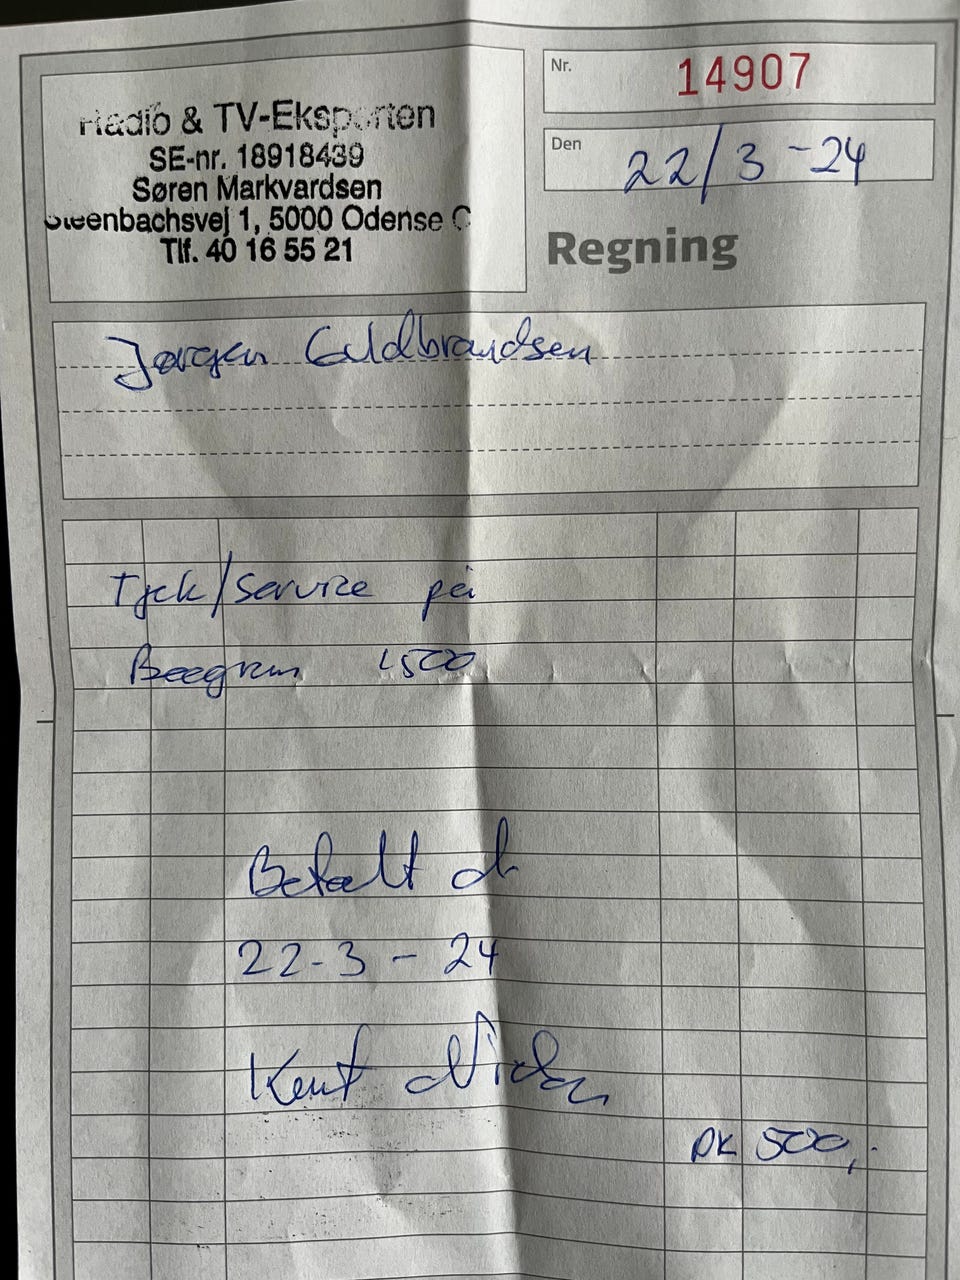 Radio & TV-Eksporten
SE-nr. 18918439
Søren Markvardsen
Steenbachsvej 1, 5000 Odense C
Tlf. 40 16 55 21
Nr. 14907
Den 22/3-24
Regning
Jørgen Guldbrandsen
Tjek/Service på
Beogram 1500
Betalt d.
22-3-24
Kent
DK 500,-